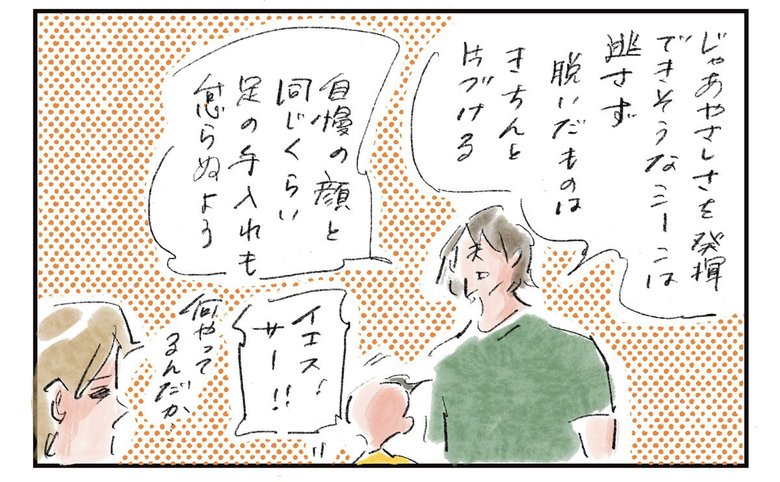 じゃあやさしさを発揮
できそうなシーンは
逃さず
脱いだものは
きちんと
片づける
自慢の顔と
同じくらい
足の手入れも
怠らぬよう
イエス!
サー!!
何やって
るんだか…